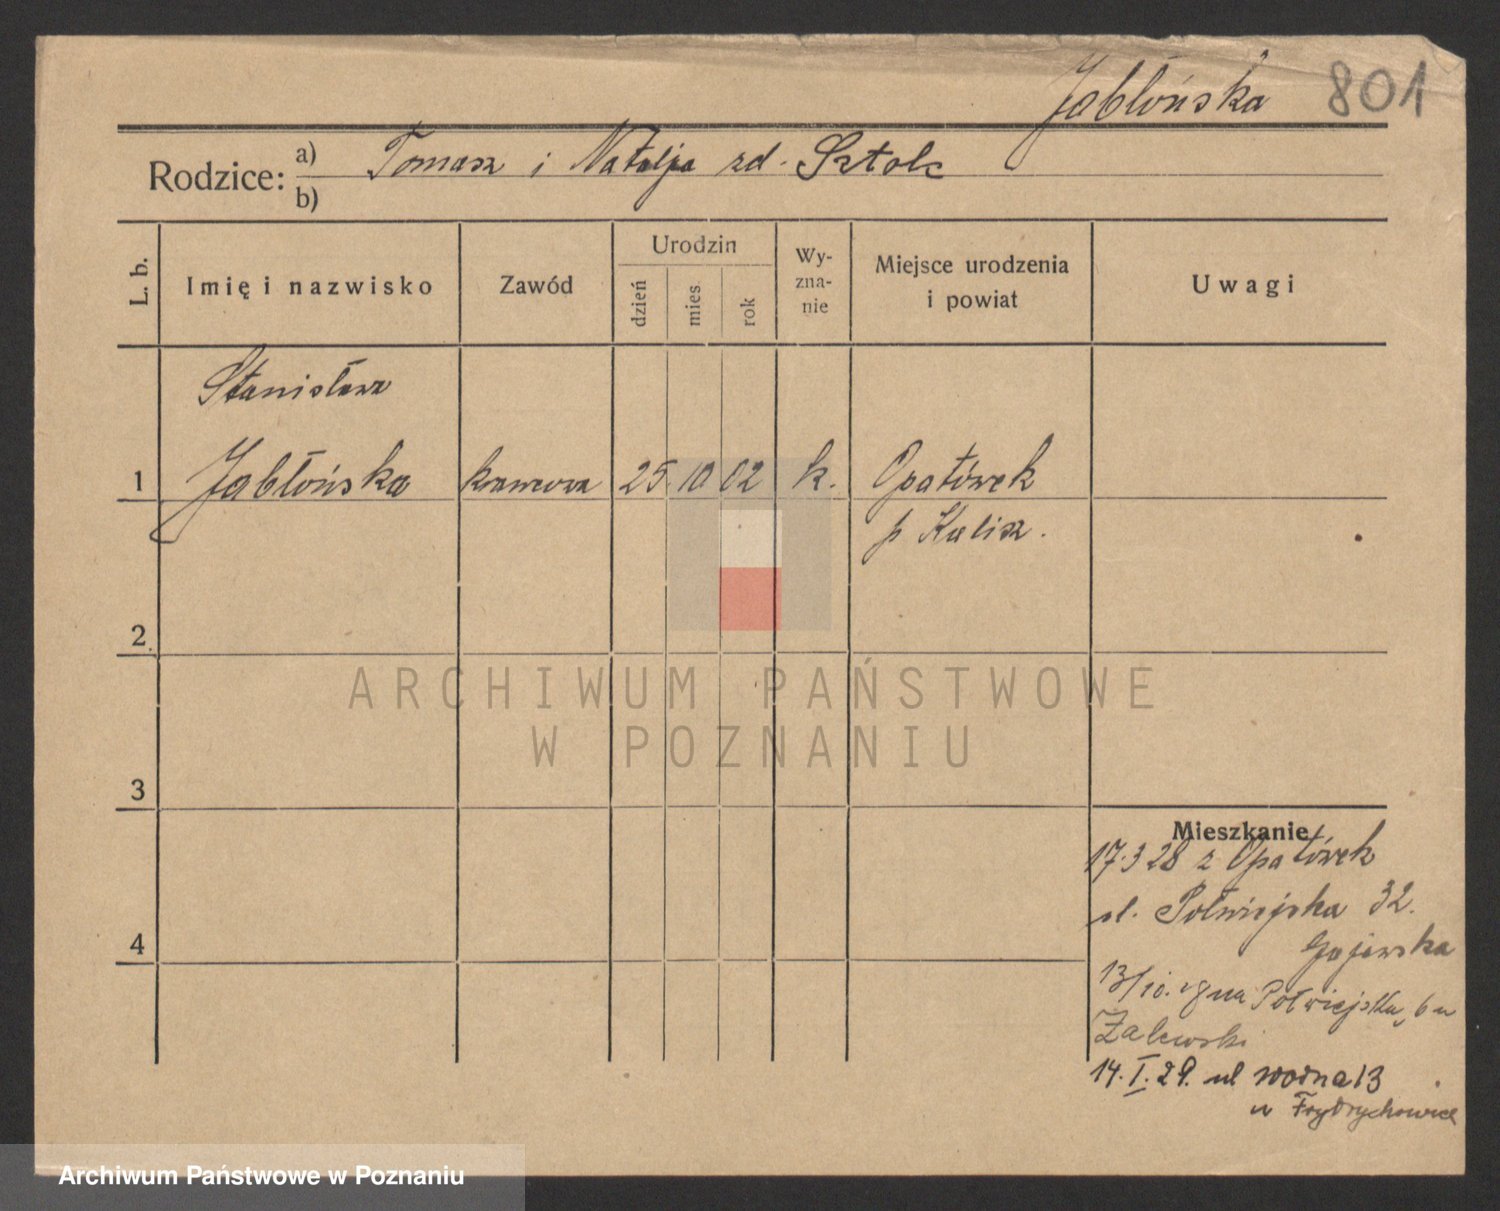 Jabłońska 801
Rodzice: a) Tomasz i Natalja zd. Sztolc
b)
L. b.
Imię i nazwisko
Zawód
Urodzin
dzień
mies.
rok
Wy-
zna-
nie
Miejsce urodzenia
i powiat
Uwagi
Stanisława
1 Jabłońska krawcowa 25. 10 02 k. Opatówek
p Kalisz.
2
3
4
Mieszkanie
17.3 28 z Opatówek
ul. Półwiejska 32.
Gajewska
13/10. 28 na Półwiejska 6 u
Zalewski
14. I. 29. ul wodna 13
u
ARCHIWUM PAŃSTWOWE
W POZNANIU
Archiwum Państwowe w Poznaniu